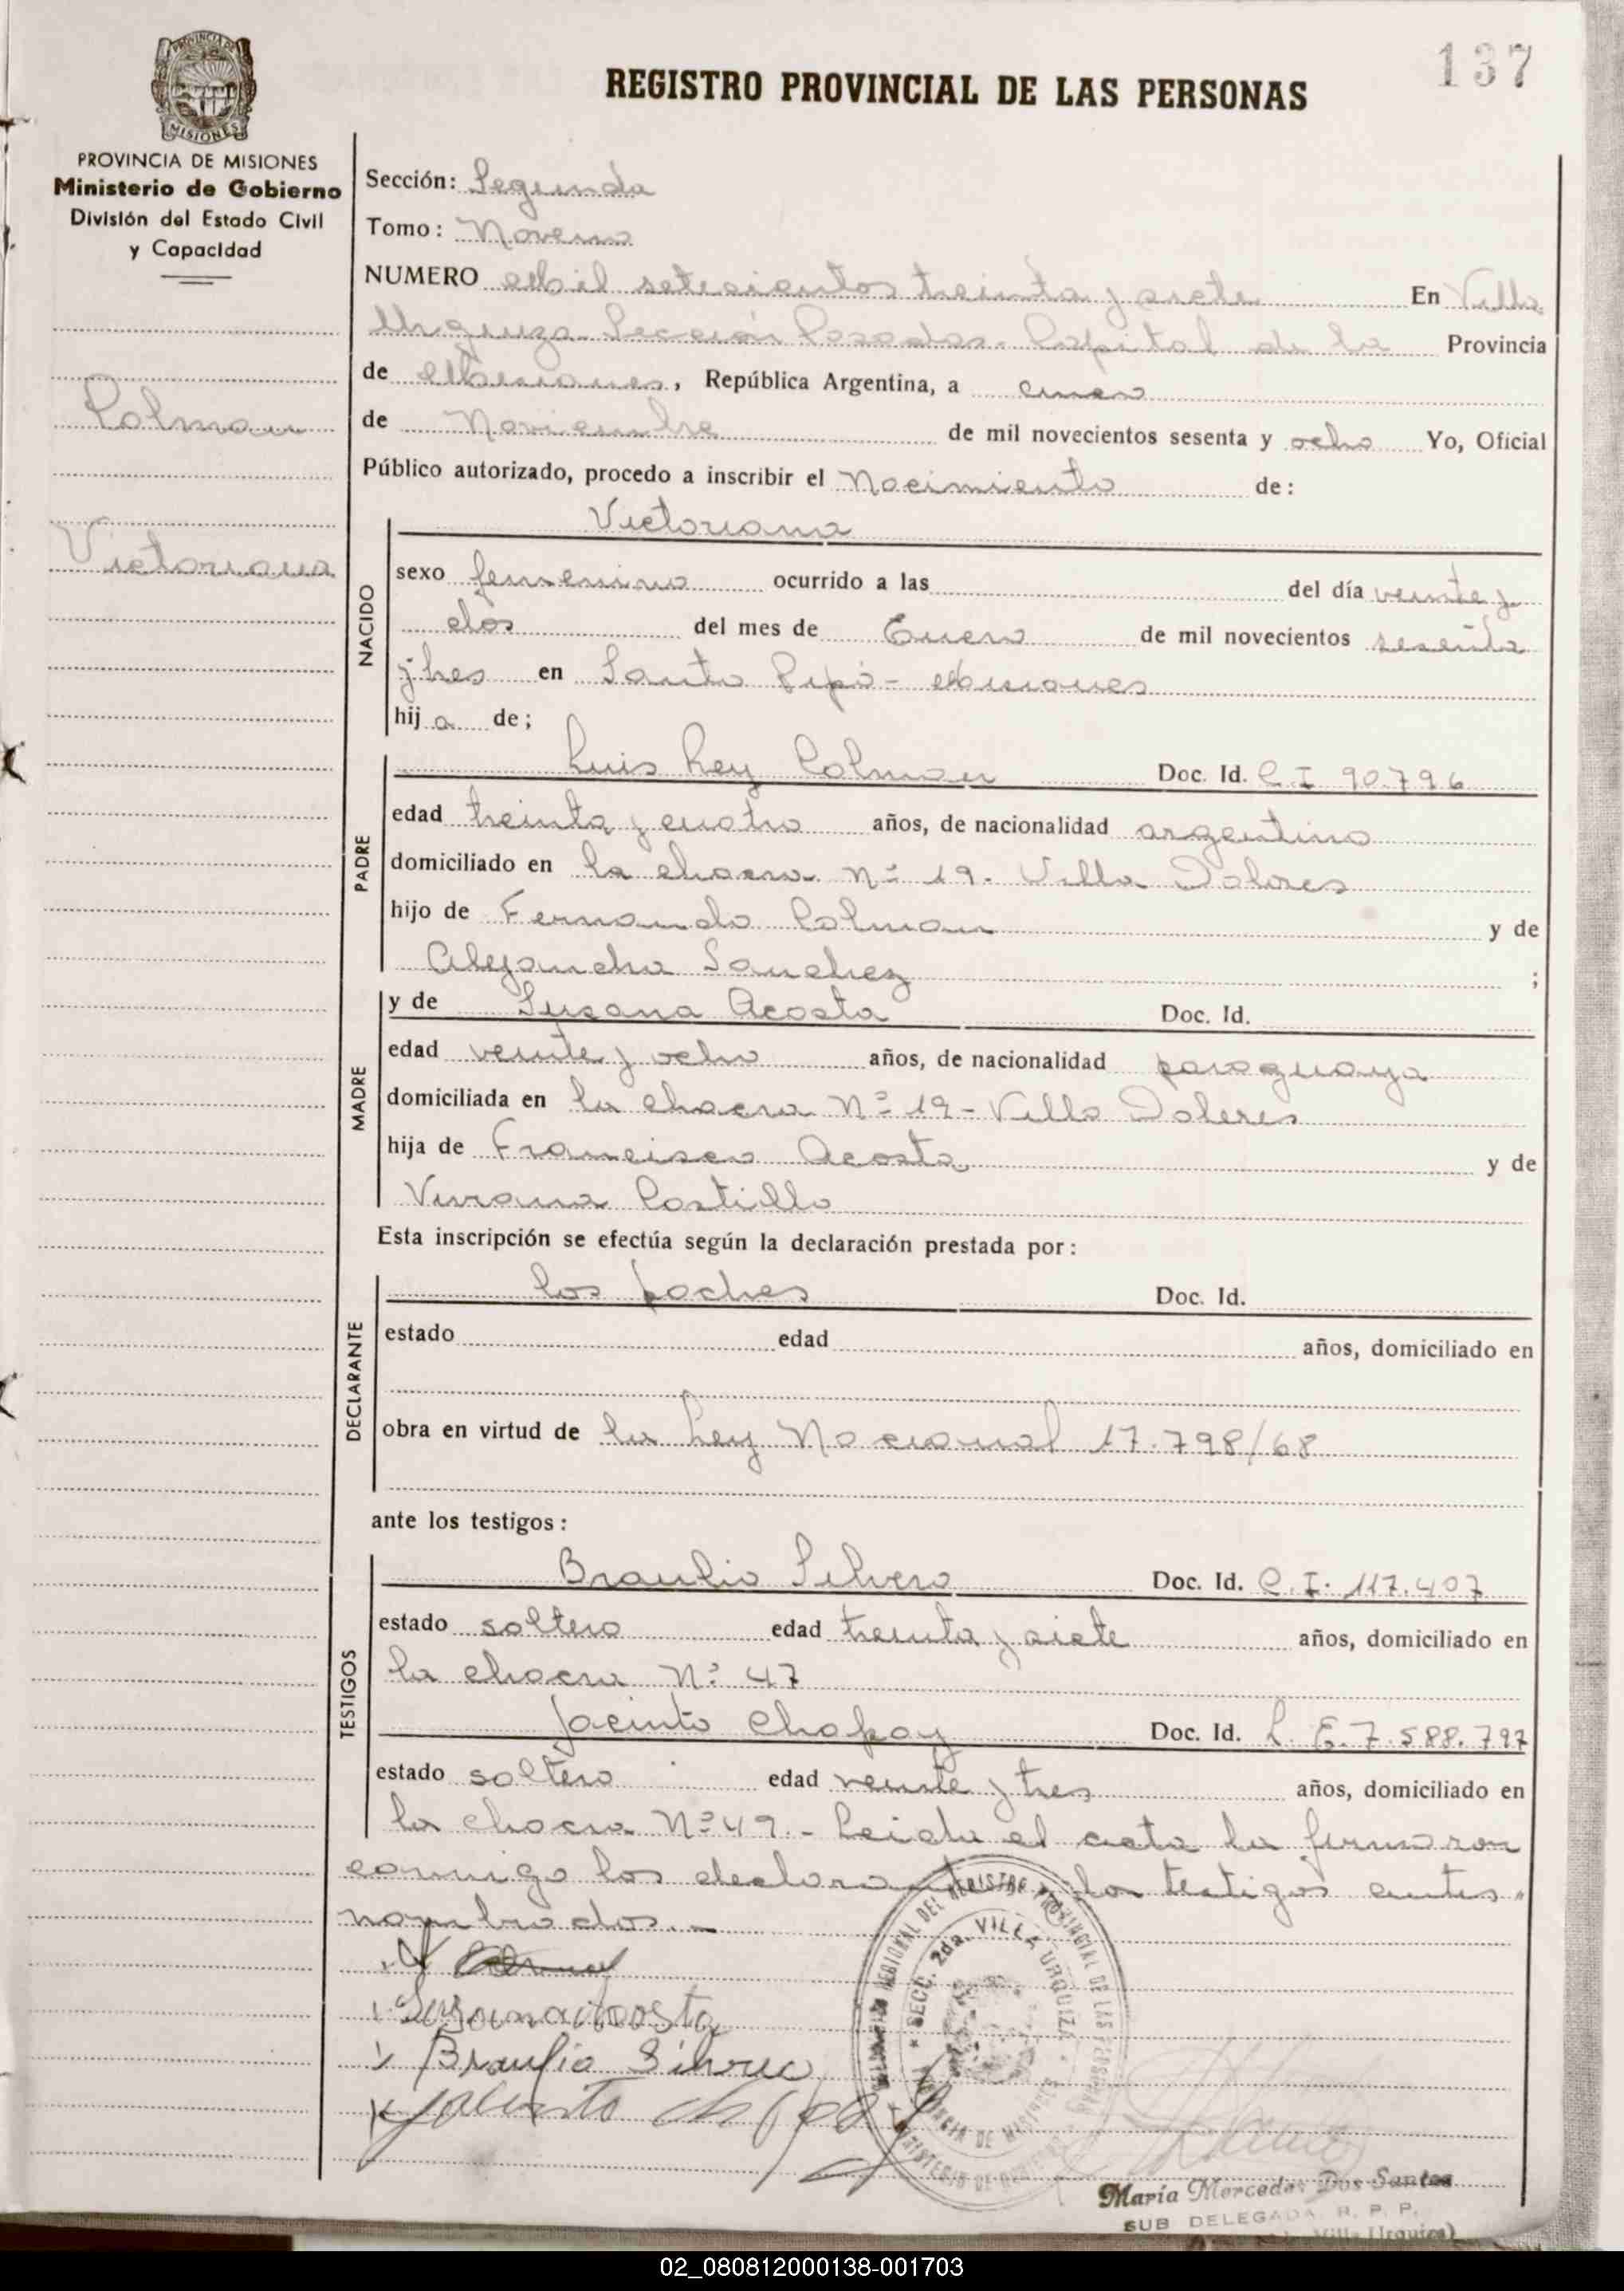 137
PROVINCIA DE MISIONES
REGISTRO PROVINCIAL DE LAS PERSONAS
PROVINCIA DE MISIONES
Ministerio de Gobierno
División del Estado Civil
y Capacidad
Colman
Victoriana
Sección: Segunda
Tomo: Noveno
NUMERO Mil setecientos treinta y siete En Villa
Urquiza Sección Posadas. Capital de la Provincia
de Misiones, República Argentina, a cinco
de Noviembre de mil novecientos sesenta y ocho Yo, Oficial
Público autorizado, procedo a inscribir el Nacimiento de:
NACIDO
Victoriana
sexo femenino ocurrido a las del día veinte y
dos del mes de Enero de mil novecientos sesenta
y tres en Santo Pipó - Misiones
hij a de;
PADRE
Luis Rey Colman Doc. Id. C.I 90.796
edad treinta y cuatro años, de nacionalidad argentino
domiciliado en la chacra Nº 19. Villa Dolores
hijo de Fernando Colman y de
Alejandra Sanchez ;
MADRE
y de Susana Acosta Doc. Id.
edad veinte y ocho años, de nacionalidad paraguaya
domiciliada en la chacra Nº 19 - Villa Dolores
hija de Francisco Acosta y de
Viviana Castillo
Esta inscripción se efectúa según la declaración prestada por:
DECLARANTE
los padres Doc. Id.
estado edad años, domiciliado en
obra en virtud de la Ley Nacional 17.798/68
ante los testigos:
TESTIGOS
Braulio Silvero Doc. Id. C.I. 117.407
estado soltero edad treinta y siete años, domiciliado en
la chacra Nº 47
Jacinto Chapay Doc. Id. L.E. 7.588.797
estado soltero edad veinte y tres años, domiciliado en
la chacra Nº 49. - Leida el acta la firmaron
conmigo los declarantes y los testigos antes
nombrados. -
Susana Acosta
Braulio Silvero
Jacinto Chapay
DELEGACION REGIONAL DEL REGISTRO PROVINCIAL DE LAS PERSONAS
SECC. 2da. VILLA URQUIZA
PROVINCIA DE MISIONES
MINISTERIO DE GOBIERNO
María Mercedes Dos Santos
SUB DELEGADA R. P. P.
Villa Urquiza)
02_080812000138-001703